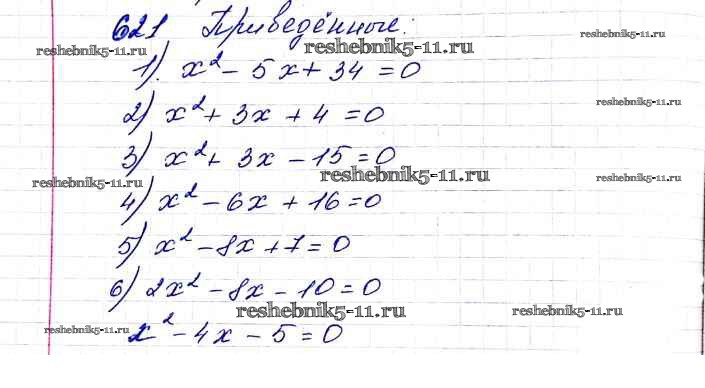 621 Приведённые:
reshebnik5-11.ru reshebnik5-11.ru reshebnik5-11.ru
1). x² - 5x + 34 = 0
reshebnik5-11.ru
2) x² + 3x + 4 = 0
3) x² + 3x - 15 = 0
reshebnik5-11.ru reshebnik5-11.ru reshebnik5-11.ru
4) x² - 6x + 16 = 0
5) x² - 8x + 7 = 0
6) 2x² - 8x - 10 = 0
reshebnik5-11.ru reshebnik5-11.ru
x² - 4x - 5 = 0
reshebnik5-11.ru